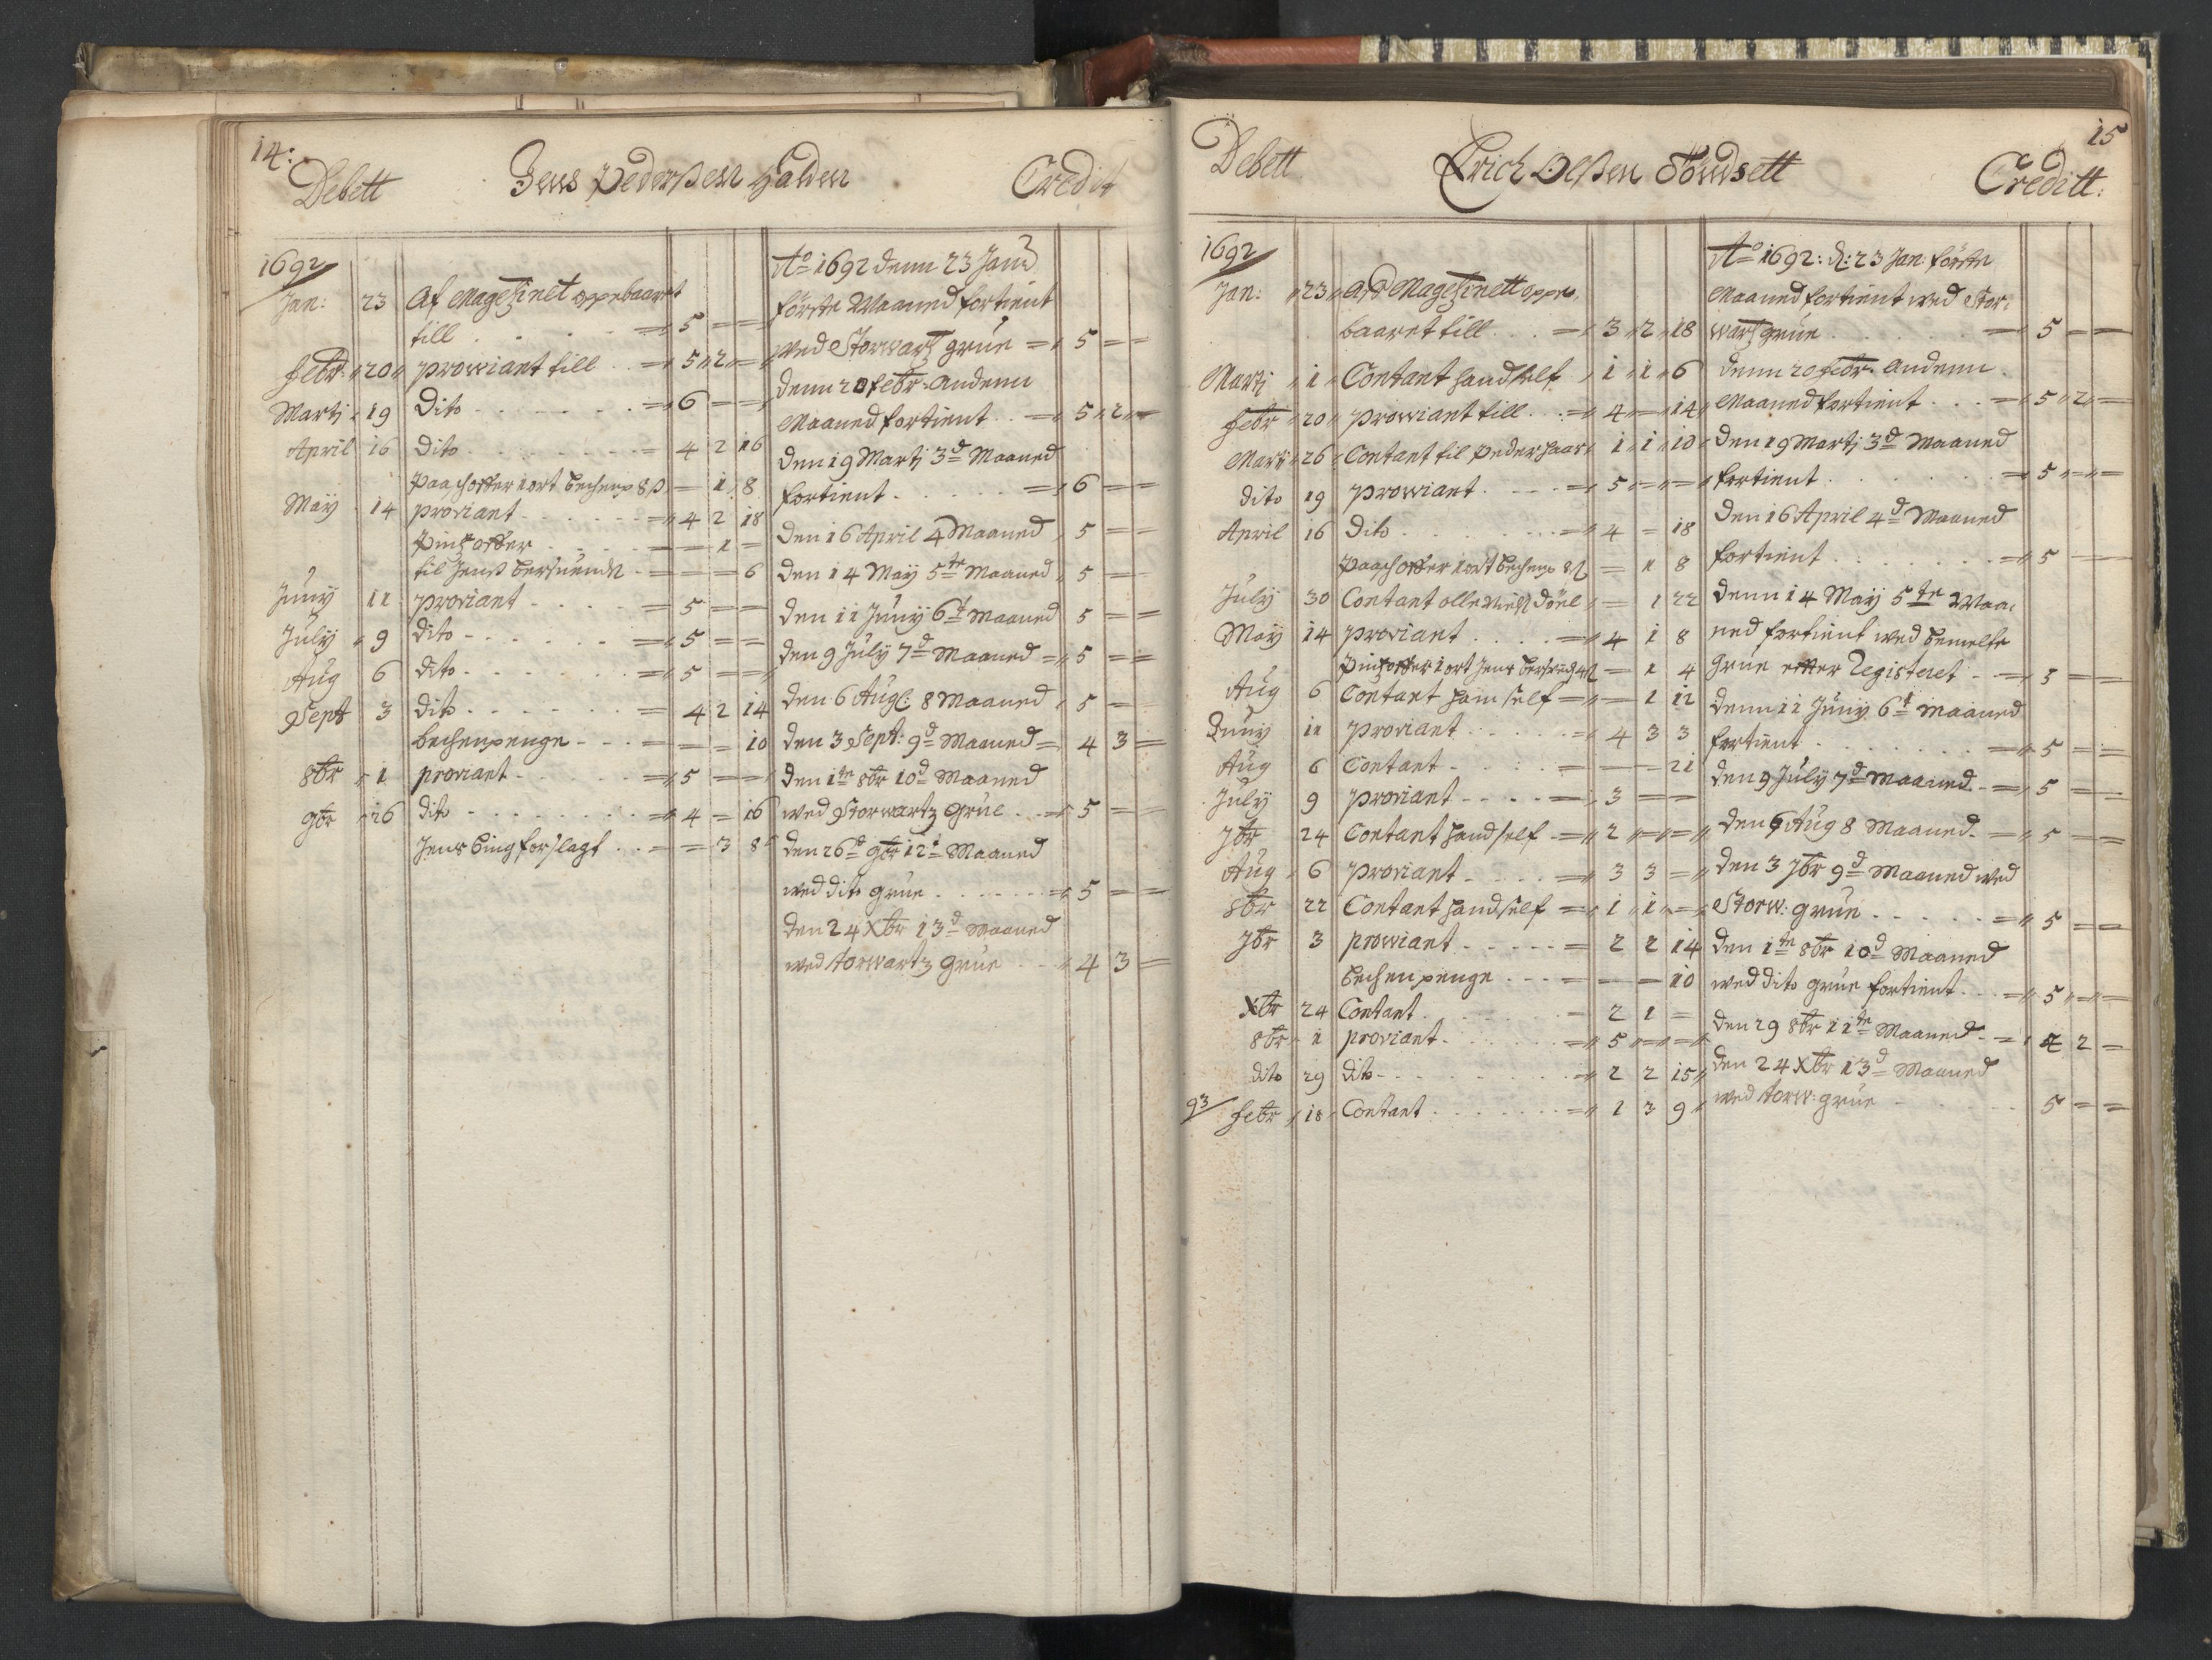 14:
Debett Jens Pederßen Halden Credit
1692
Jan: 23 Af Magezinet oppebaaret
till . . . = 5 = =
Febr: 20 prowiant till . . = 5 2 =
Martj 19 Dito . . . . . = 6 = =
April 16 Dito . . . . . = 4 2 16
Paaschoffer 1 ort becheup 8 β = 1 8
Maÿ 14 proviant . . . . = 4 2 18
Pintzoffer . . . . = = 1 =
til Jenß - = = 6
Junÿ 11 proviant . . . . = 5 = =
Julÿ 9 dito . . . . . = 5 = =
Aug 6 dito . . . . . = 5 = =
Sept 3 dito . . . . . = 4 2 14
bechenpenge . . . = = = 10
8br 1 proviant . . . . = 5 = =
9br 26 dito . . . . . = 4 = 16
Jens forslagt . . = = 3 8
Ao 1692 denn 23 Janu
förste Maaned fortient
wed Storwartz grue = 5 = =
denn 20 Febr. andenn
Maaned fortient . . = 5 2 =
Den 19 Martj 3d Maaned
fortient . . . . . = 6 = =
Den 16 April 4 Maaned 5 = =
Den 14 Maÿ 5te Maaned 5 = =
Den 11 Junÿ 6t Maaned 5 = =
Den 9 Julÿ 7d Maaned = 5 = =
Den 6 Aug: 8 Maaned 5 = =
Den 3 Sept: 9d Maaned = 4 3 =
Den 1te 8br 10d Maaned
wed Storwartz Grue . . = 5 = =
Den 26d 9br 12t Maaned
wed dito grue . . . . = 5 = =
Den 24 Xbr 13d Maaned
wed torwartz Grue . . 4 3 =
15
Debett Erich Olßen Tönsett Creditt:
1692
Jan: 23 Magezinett oppe
baaret till . . . = 3 2 18
Martj 1 Contant hand self 1 1 6
Febr 20 prowiant till . . = 4 = 14
Martj 26 Contant til Peder 1 1 10
dito 19 prowiant . . . . = 5 = =
April 16 dito . . . . . = 4 = 18
Paaschoffer 1 ort 8 β = 1 8
Julÿ 30 Contant olle = 1 22
Maÿ 14 proviant . . . . = 4 1 8
Pintzoffer 1 ort Jens = 1 4
Aug 6 Contant ham self = = 1 12
Junÿ 11 proviant . . . . = 4 3 3
Aug 6 Contant . . . . = = = 21
Julÿ 9 proviant . . . . = 3 = =
7br 24 Contant hand self = 2 = =
Aug 6 proviant . . . . = 3 3 =
8br 22 Contant hand self = 1 1 =
7br 3 prowiant . . . . = 2 2 14
bechenpenge . . . = = = 10
Xbr 24 Contant . . . . = 2 1 =
8br 1 proviant . . . . = 5 = =
dito 29 dito . . . . . = 2 2 15
93 Febr 18 Contant . . . . = 1 3 9
Ao 1692: d: 23 Jan: förste
Maaned fortient wed Stor:
wartz grue . . . . = 5 = =
denn 20 Febr. andenn
Maaned fortient . . . = 5 2 =
Den 19 Martj 3d Maaned
fortient . . . . . = 5 = =
Den 16 April 4d Maaned
fortient . . . . . = 5 = =
Denn 14 Maÿ 5te Maa,
ned fortient wed bemelte
grue etter Registeret . = 5 = =
Denn 11 Junÿ 6t Maaned
fortient . . . . . = 5 = =
Den 9 Julÿ 7d Maaned . = 5 = =
Den 6 Aug 8 Maaned . = 5 = =
Den 3 7br 9d Maaned wed
Storw: grue . . . . = 5 = =
Den 1te 8br 10d Maaned
wed dito grue fortient . . = 5 = =
Den 29 8br 11te Maaned . = 4 2 =
Den 24 Xbr 13d Maaned
wed torw: grue . . . . 5 = =